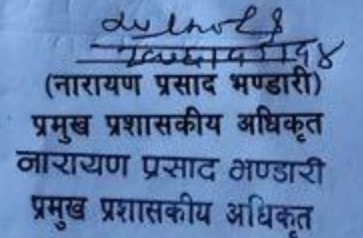 (नारायण प्रसाद भण्डारी)
प्रमुख प्रशासकीय अधिकृत
नारायण प्रसाद भण्डारी
प्रमुख प्रशासकीय अधिकृत